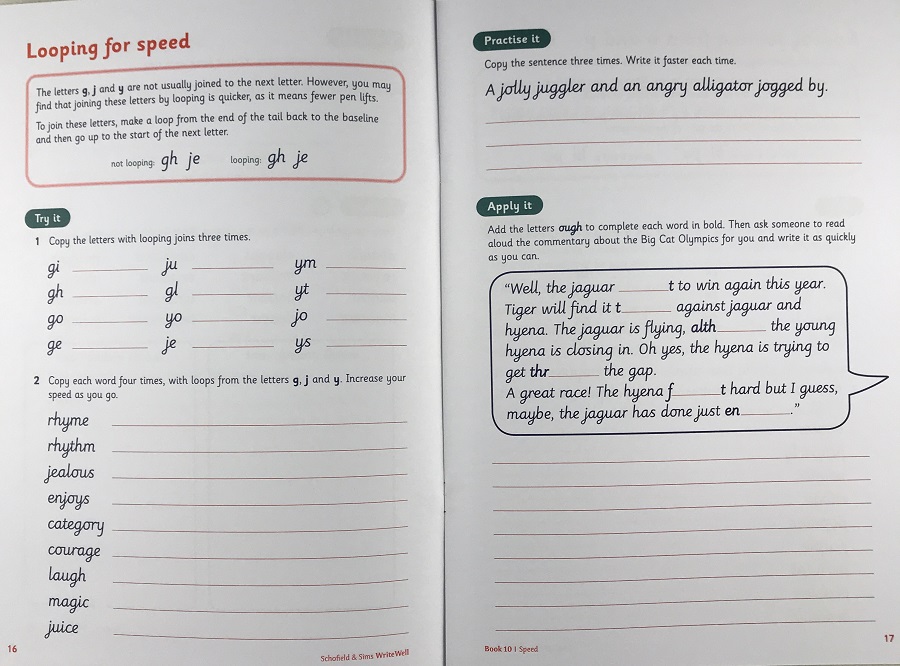 Looping for speed
The letters g, j and y are not usually joined to the next letter. However, you may
find that joining these letters by looping is quicker, as it means fewer pen lifts.
To join these letters, make a loop from the end of the tail back to the baseline
and then go up to the start of the next letter.
not looping: gh je looping: gh je
Try it
1 Copy the letters with looping joins three times.
gi ju ym
gh gl yt
go yo jo
ge je ys
2 Copy each word four times, with loops from the letters g, j and y. Increase your
speed as you go.
rhyme
rhythm
jealous
enjoys
category
courage
laugh
magic
juice
16
Schofield & Sims WriteWell
Practise it
Copy the sentence three times. Write it faster each time.
A jolly juggler and an angry alligator jogged by.
Apply it
Add the letters ough to complete each word in bold. Then ask someone to read
aloud the commentary about the Big Cat Olympics for you and write it as quickly
as you can.
"Well, the jaguar ______t to win again this year.
Tiger will find it t______ against jaguar and
hyena. The jaguar is flying, alth______ the young
hyena is closing in. Oh yes, the hyena is trying to
get thr______ the gap.
A great race! The hyena f______t hard but I guess,
maybe, the jaguar has done just en______."
Book 10 | Speed
17